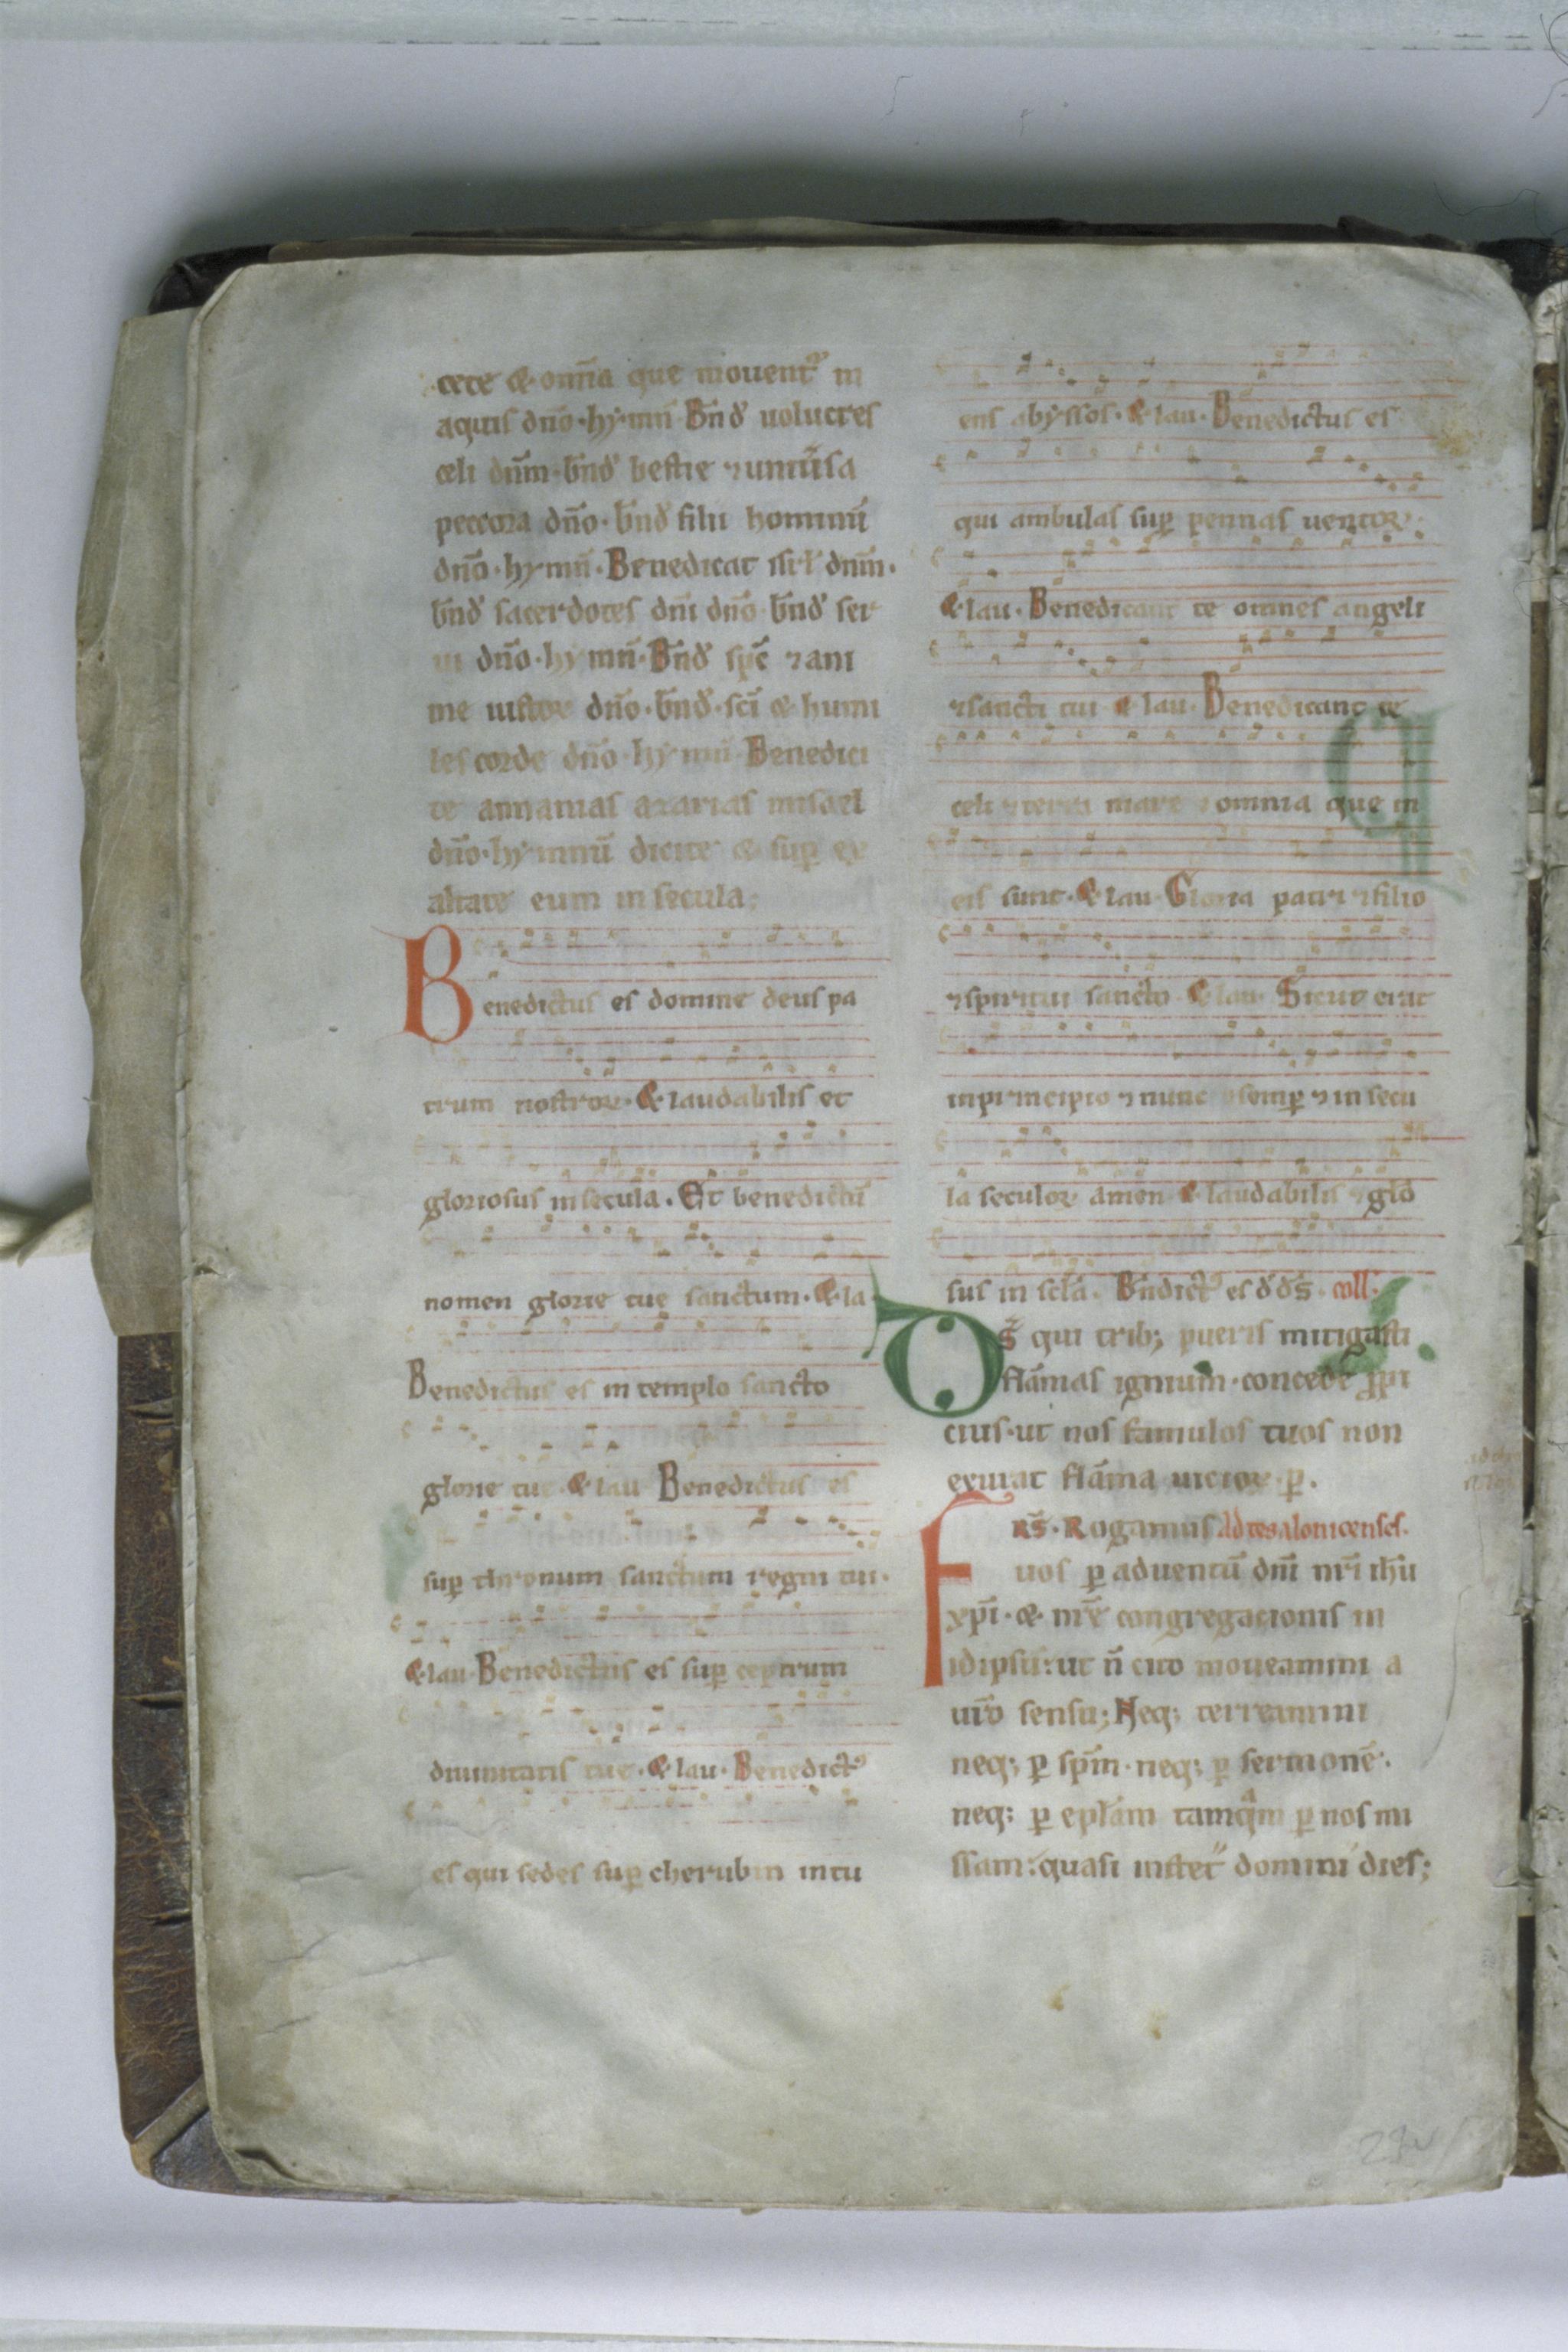 cete & om̅ia que mouent᷒ in
aquis dn̅o·hymn̅ Bn̅d̕ uolucres
celi dn̅m·bn̅d̕ bestie ⁊uniu̅sa
peccora dn̅o·bn̅d̕ filii hominu̅
dn̅o·hymn̅·Benedicat isr̕l̕ dn̅m·
bn̅d̕ sacerdotes dn̅i dn̅o bn̅d̕ ser
ui dn̅o·hymn̅·Bn̅d̕ sp̅c ⁊ani
me iustoꝝ dn̅o·bn̅d̕·sc̅i & humi
les corde dn̅o·hymn̅·Benedici
te annanias azarias misael
dn̅o·hymnu̅ dicite & sup̲ ex
altate eum in secula;
Benedictus es domine deus pa
trum nostroꝝ·&laudabilis et
gloriosus insecula. Et benedictu̅
nomen glorie tue sanctum·&la
Benedictus es in templo sancto
glorie tue·&lau Benedictus es
sup̲ thronum sanctum regni tui·
&lau·Benedictus es sup̲ ceptrum
diuinitatis tue·&lau·Benedict᷒
es qui sedes sup̲ cherubin intu
ens abyssos·&lau·Benedictus es
qui ambulas sup̲ pennas uentoꝝ·
&lau·Benedicant te omnes angeli
⁊sancti tui &lau·Benedicant te
celi ⁊terra mare ⁊omnia que in
eis sunt·&lau·Gloria patri ⁊filio
⁊spiritui sancto &lau· Sicut erat
inprincipio ⁊nunc ⁊semp̲ ⁊in secu
la seculoꝝ amen &laudabilis ⁊glo̅
sus in scl̅a. Bn̅dict᷒ es d̕d̕s̅· coll̕·
Ds̅ qui trib; pueris mitigasti
fla̅mas ignium·concede p̲pi
cius·ut nos famulos tuos non
exurat fla̅ma uicioꝝ·p̲.
FRS̅·Rogamus Ad tesalonicenses.
uos p̲ aduentu̅ dn̅i nr̅i ih̅u
xp̅i·& nr̅e congregacionis in
idipsu̅:ut n̅ cito moueamini a
ur̅o sensu; Neq; terreamini
neq; p̲ sp̅m·neq; p̲ sermone̅·
neq; p̲ epl̅am tamq̅m p̲ nos mi
ssam:quasi instet domini dies;
23v